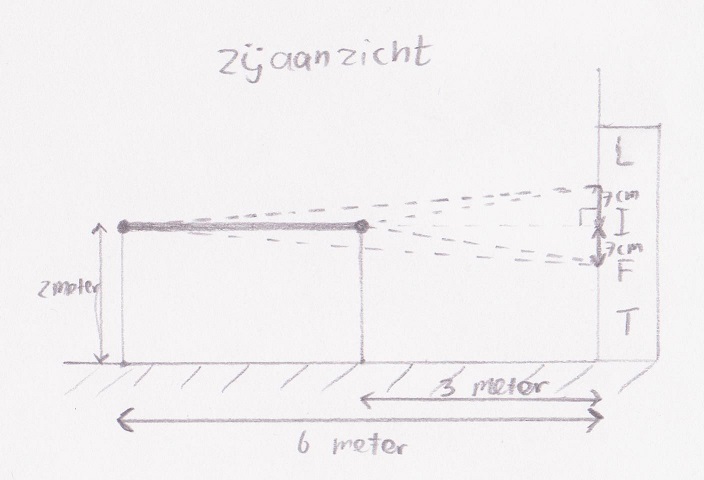 zijaanzicht
L
7cm
I
7cm
F
2 meter
T
3 meter
6 meter